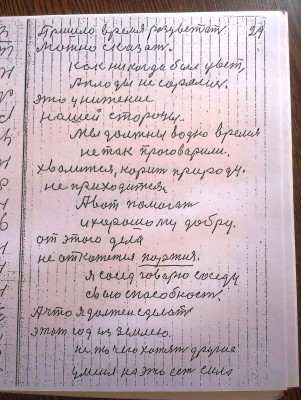 29
Пришло время розветат
Можно сказат.
Как никогда был цвет,
Аплоды не сорялис.
это унижение
нашей стороны.
Мы должны водно время
не так проговарили.
хвалится, корит природу.
не приходится.
Авот помогат
ихорошому добру.
от этого дела
не откажется партия.
Я сосед говарю соседу
свою способност.
Ачто я должен сделат
этат год из землею.
не то чего хотят другие
уменя на это ест сила